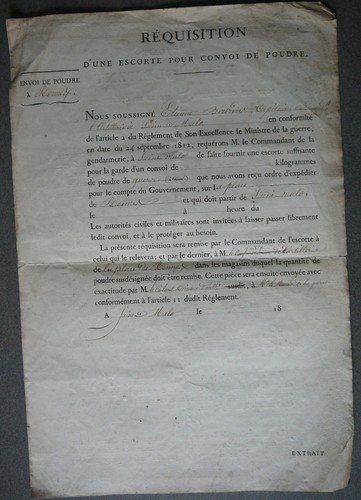 RÉQUISITION
D'UNE ESCORTE POUR CONVOI DE POUDRE.
ENVOI DE POUDRE
à Rennes
NOUS SOUSSIGNÉ
en conformité
de l'article 2 du Réglement de Son Excellence le Ministre de la guerre,
en date du 24 septembre 1812, requérons M. le Commandant de la
gendarmerie, à Saint Malo de faire fournir une escorte suffisante
pour la garde d'un convoi de kilogrammes
de poudre de que nous avons reçu ordre d'expédier
pour le compte du Gouvernement, sur la place
de Rennes et qui doit partir de Saint Malo
le à heure du
Les autorités civiles et militaires sont invitées à laisser passer librement
ledit convoi, et à le protéger au besoin.
La présente réquisition sera remise par le Commandant de l'escorte à
celui qui le relevera; et par le dernier, à M.
de la place de Rennes dans les magasins duquel la quantité de
poudre susdésignée doit être remise. Cette pièce sera ensuite envoyée avec
exactitude par M. susdit, à
conformément à l'article 11 dudit Réglement.
A Saint Malo le 18
EXTRAIT